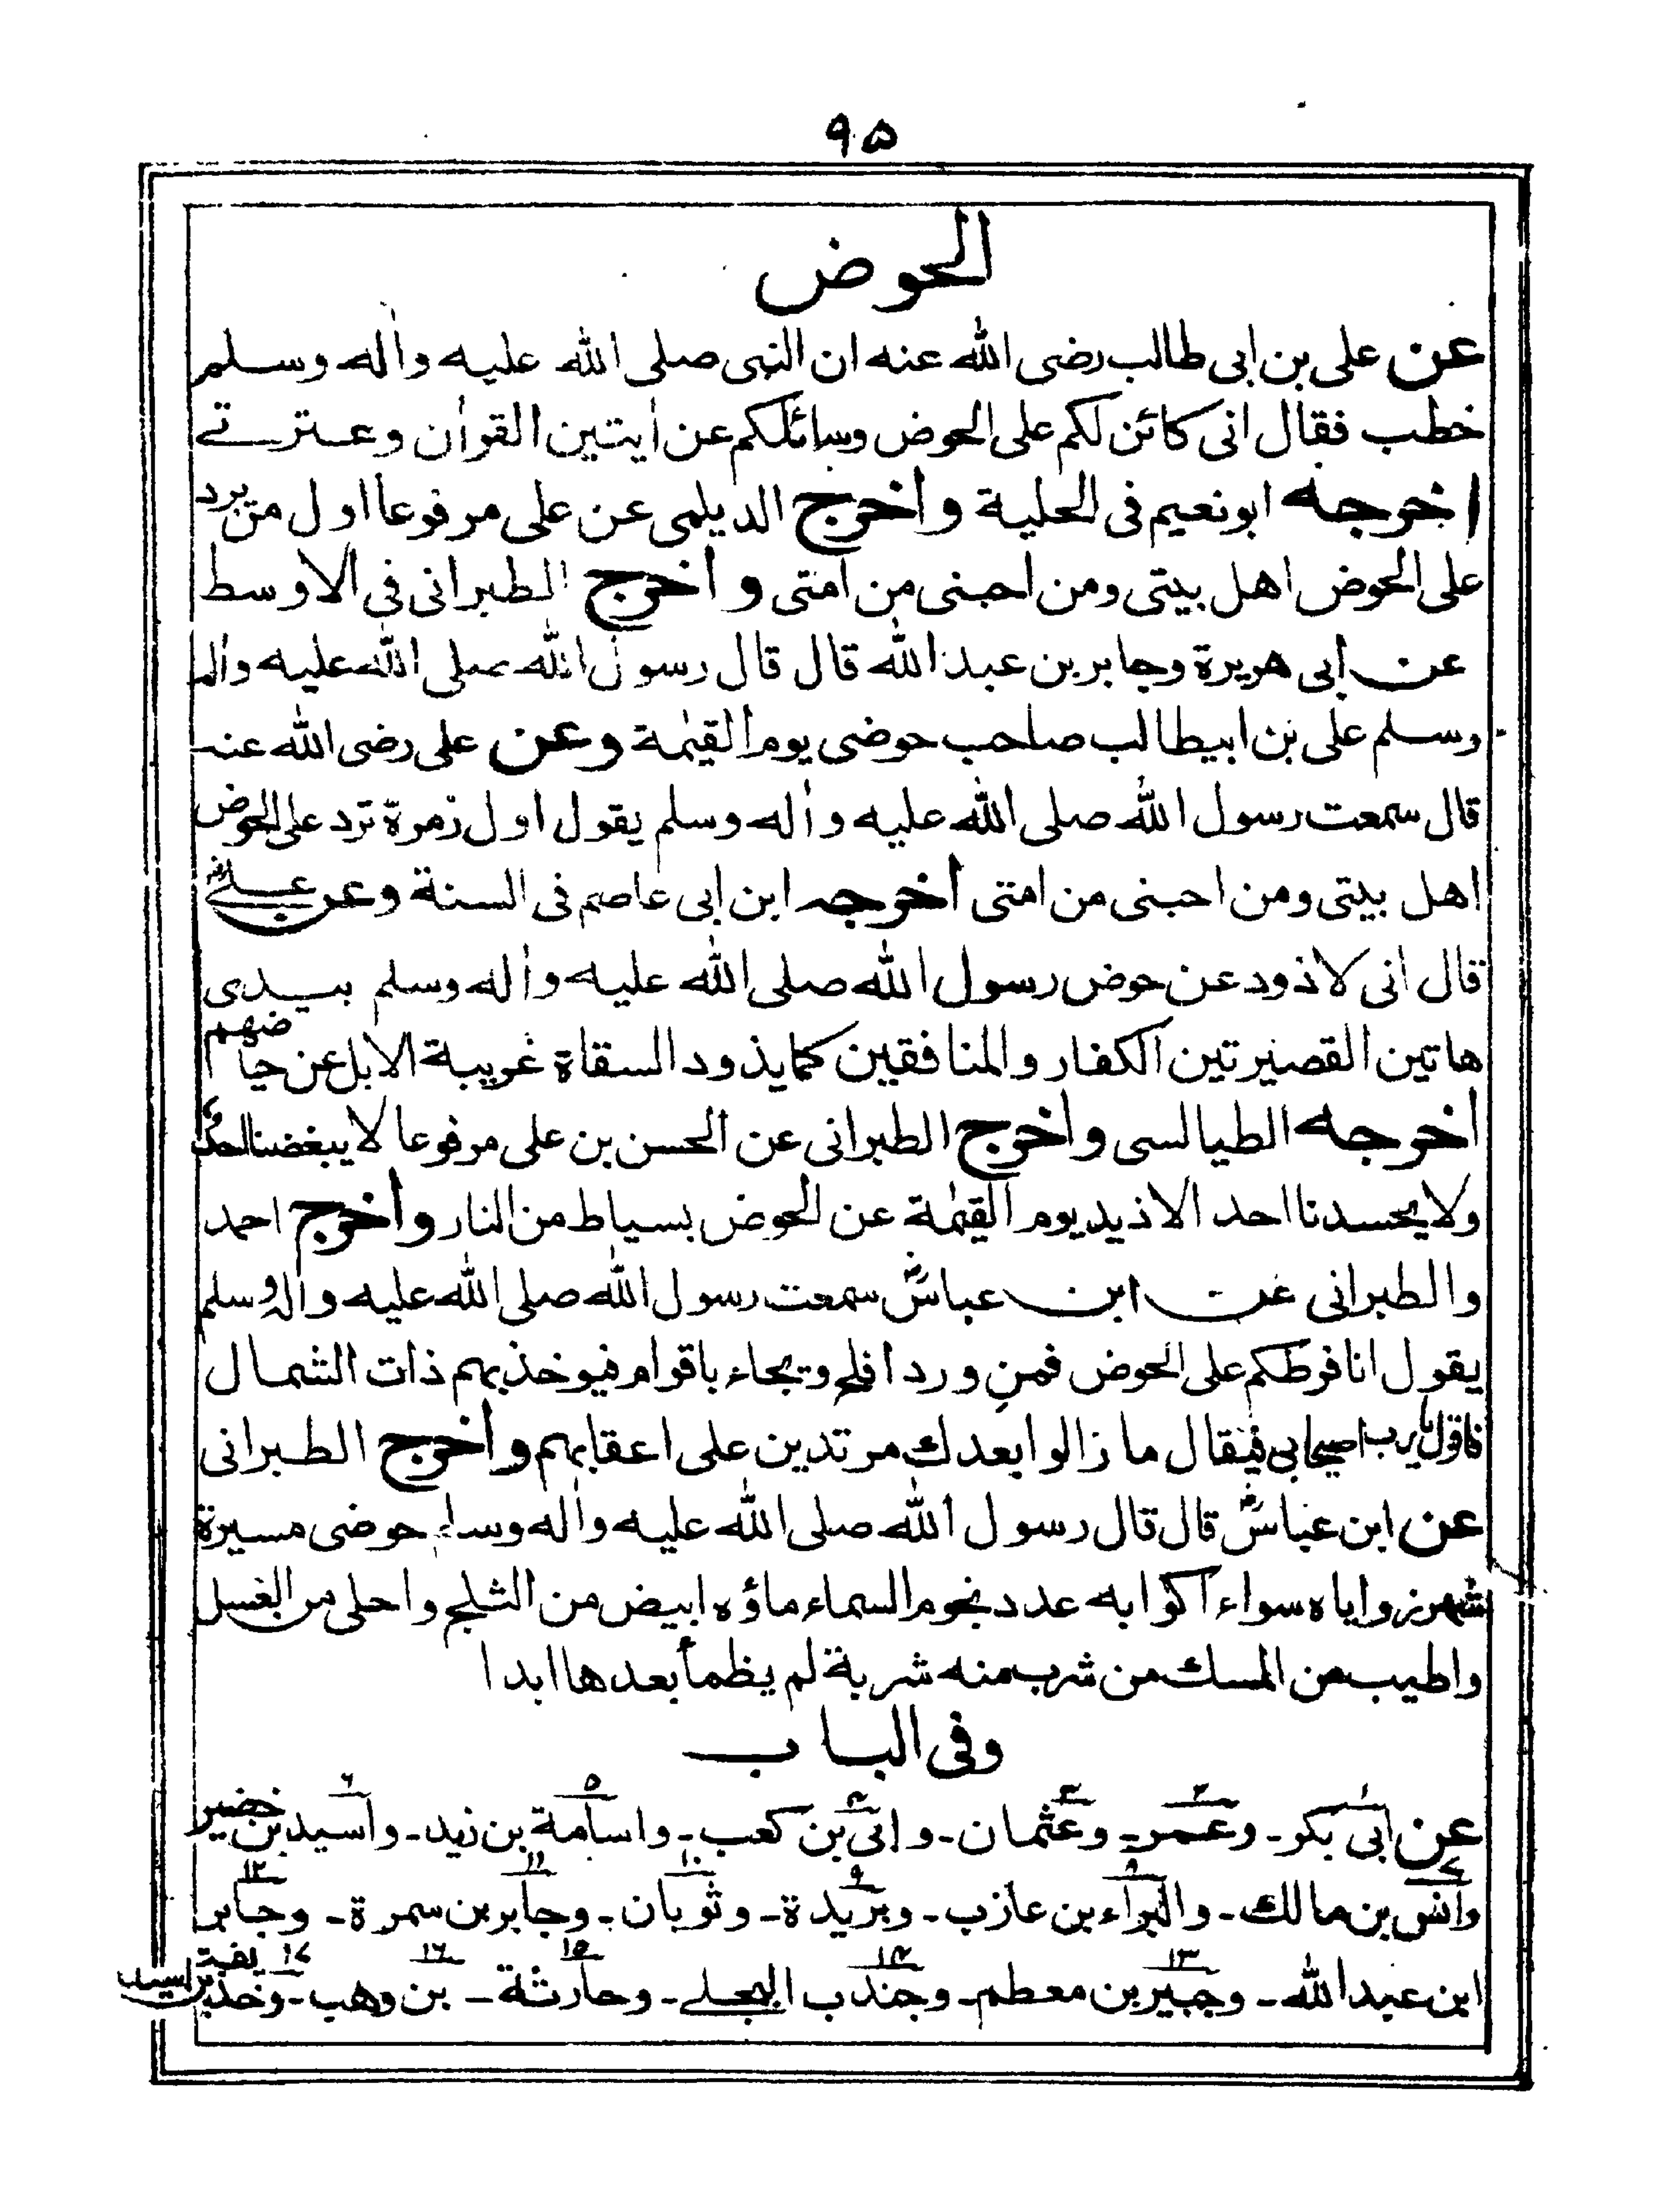 ٩٥
الحوض
عن علی بن ابی طالب رضی الله عنه ان النبی صلی الله علیه واٰله وسلم
خطب فقال انی کائن لکم علی الحوض وسائلکم عن اٰیتین القراٰن وعترتے
اخرجه ابونعیم فی الحلیة واخرج الدیلمی عن علی مرفوعا اول من یرد
علی الحوض اهل بیتی ومن احبنی من امتی واخرج الطبرانی فی الاوسط
عن ابی هریرة وجابر بن عبد الله قال قال رسول الله صلی الله علیه واٰله
وسلم علی بن ابیطالب صاحب حوضی یوم القیٰمة وعن علی رضی الله عنه
قال سمعت رسول الله صلی الله علیه واٰله وسلم یقول اول زمرة ترد علی الحوض
اهل بیتی ومن احبنی من امتی اخرجه ابن ابی عاصم فی السنة وعن علے رضه
قال انی لاذود عن حوض رسول الله صلی الله علیه واٰله وسلم بیدی
هاتین القصیرتین الکفار والمنافقین کما یذود السقاة غریبة الابل عن حیاضهم
اخرجه الطیالسی واخرج الطبرانی عن الحسن بن علی مرفوعا لا یبغضنا احد
ولا یحسدنا احد الا ذید یوم القیٰمة عن الحوض بسیاط من النار واخرج احمد
والطبرانی عن ابن عباسؓ سمعت رسول الله صلی الله علیه واٰله وسلم
یقول انا فرطکم علی الحوض فمن ورد افلح ویجاء باقوام فیوخذ بهم ذات الشمال
فاقول یا رب اصیحابی فیقال ما زالوا بعدك مرتدین علی اعقابهم واخرج الطبرانی
عن ابن عباسؓ قال قال رسول الله صلی الله علیه واٰله وسلم حوضی مسیرة
شهر زوایاه سواء اکوابه عدد نجوم السماء ماؤه ابیض من الثلج واحلی من العسل
واطیب من المسك من شرب منه شربة لم یظمأ بعدها ابدا
وفی الباب
عن ابی بکر١ـ وعمر٢ـ وعثمان٣ـ وابی بن کعب٤ـ واسامة بن زید٥ـ واسید بن حضیر٦
وانس بن مالك٧ـ والبراء بن عازب٨ـ وبریدة٩ـ وثوبان١٠ـ وجابر بن سمرة١١ـ وجابر١٢
ابن عبد الله ـ وجبیر بن معطم١٣ـ وجندب البجلے١٤ـ وحارثة١٥ـ بن وهب١٦ـ وحذیفة١٧ بن اسید